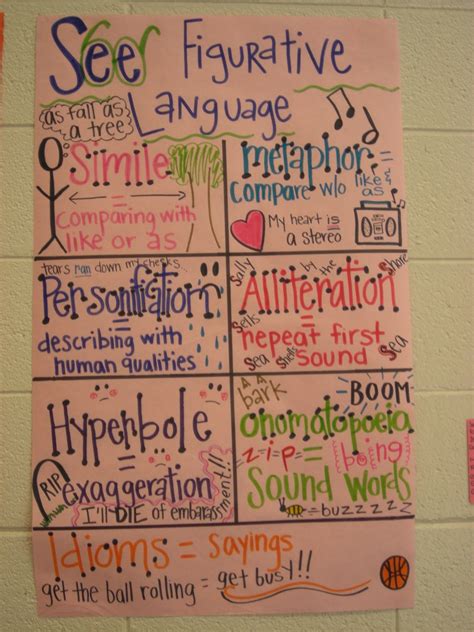 Seer Figurative
Language
as tall as
a tree
Simile
=
comparing with
like or as
metaphor =
compare w/o like
as
My heart is
a stereo
tears ran down my cheeks
Personification
=
describing with
human qualities
Sally by the Shore
Alliteration
=
Sells
repeat first
sound
Sea Shells Sea
Hyperbole
=
exaggeration
RIP
I'll DIE of embarassment!!
A A
bark
BOOM
onomatopoeia
z-i-p = being
Sound words
=buzzzzz
Idioms = Sayings
get the ball rolling = get busy!!